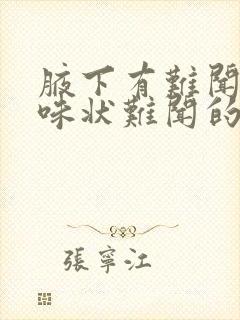 腋下有難聞
味狀難聞的
張寧江